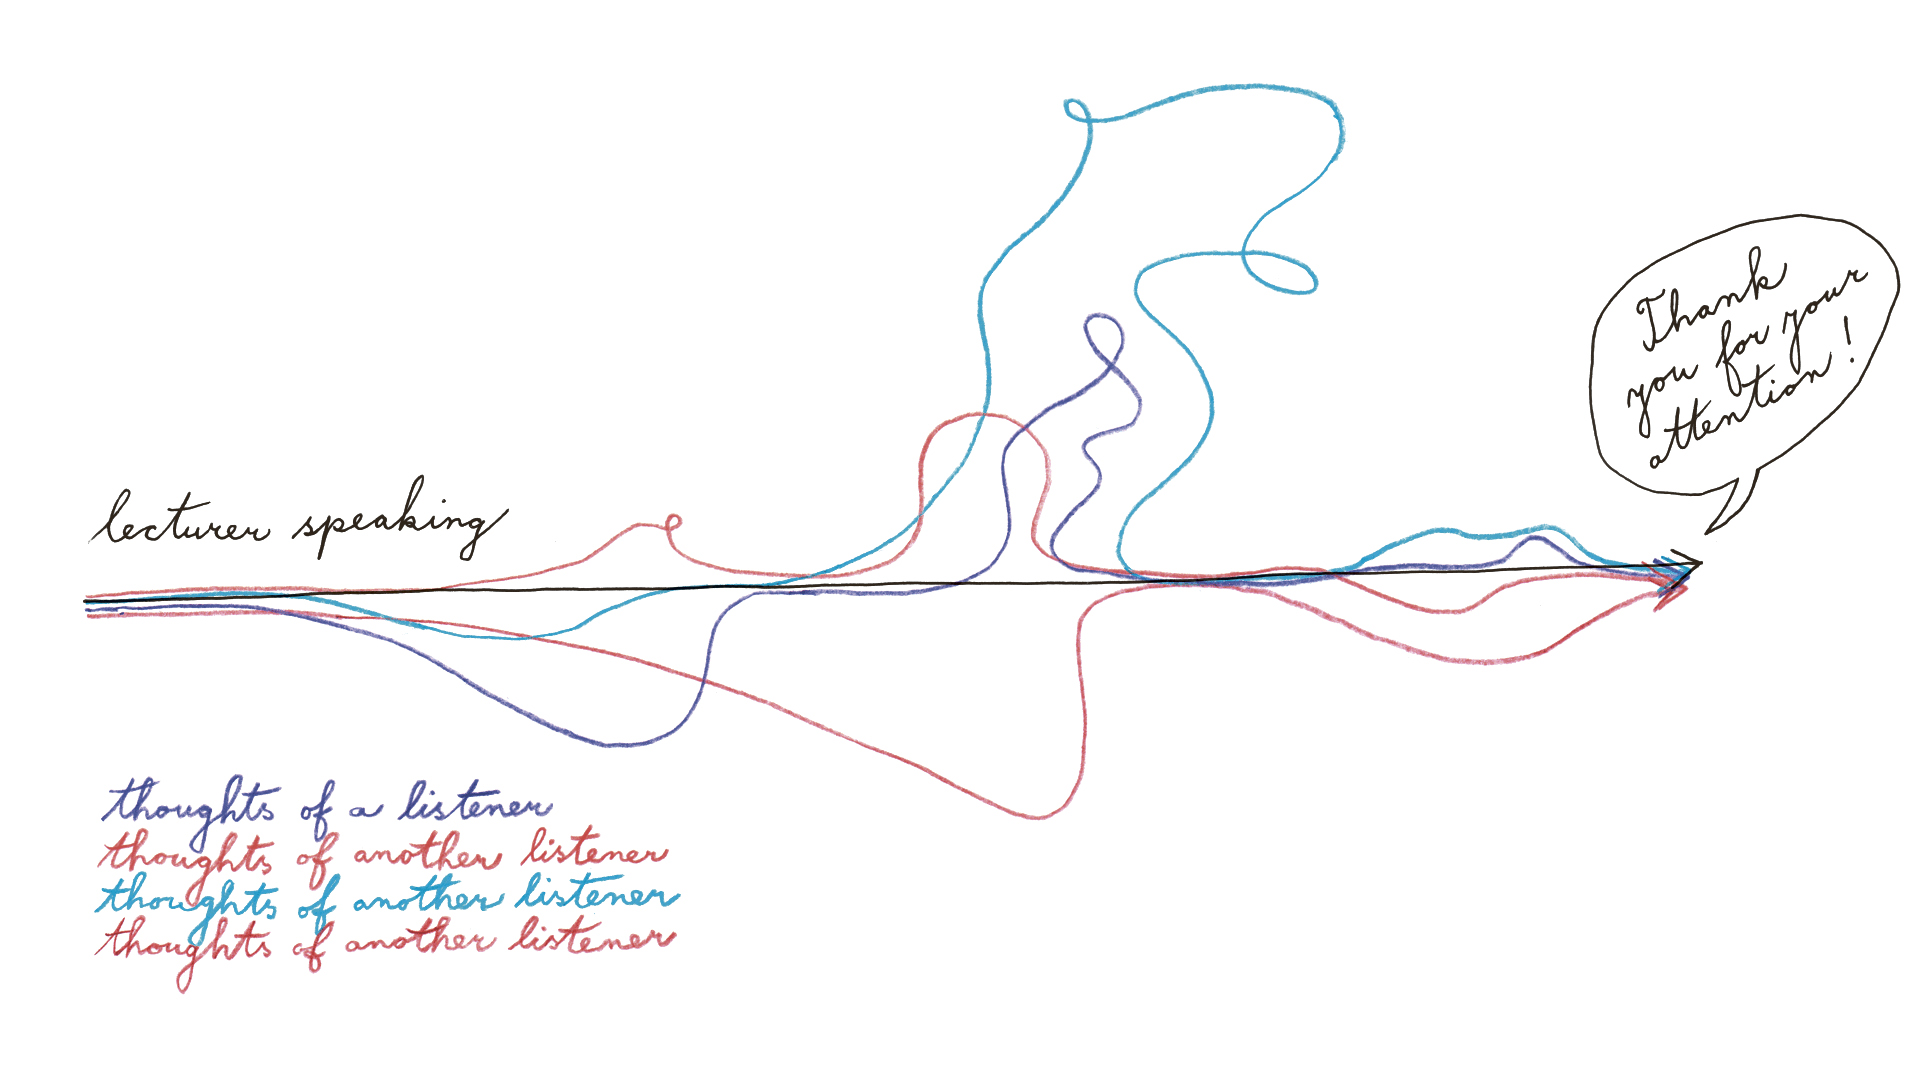 lecturer speaking
Thank
you for your
attention!
thoughts of a listener
thoughts of another listener
thoughts of another listener
thoughts of another listener